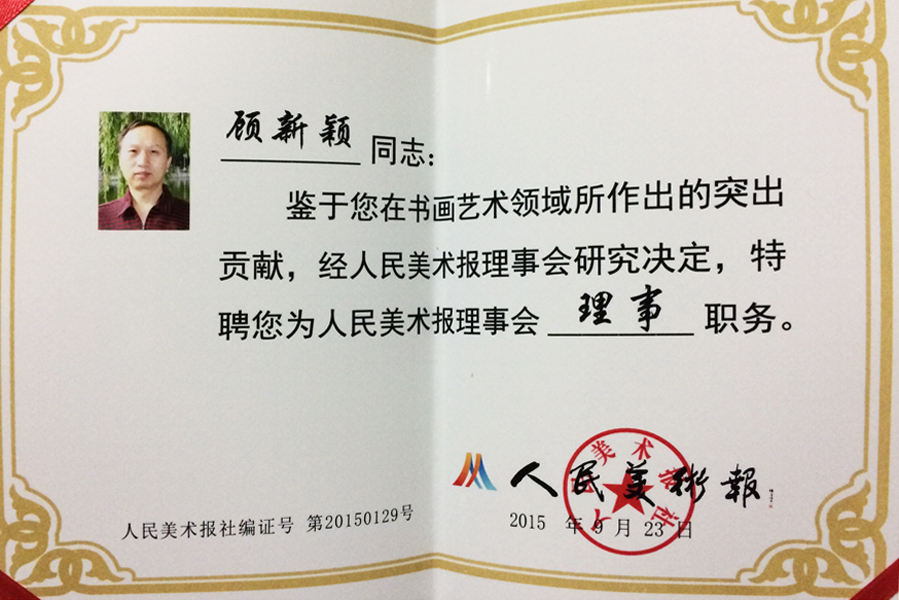 顾新颖 同志：
鉴于您在书画艺术领域所作出的突出
贡献，经人民美术报理事会研究决定，特
聘您为人民美术报理事会 理事 职务。
人民美术报
人民美术报社
2015 年 9 月 23 日
人民美术报社编证号 第20150129号